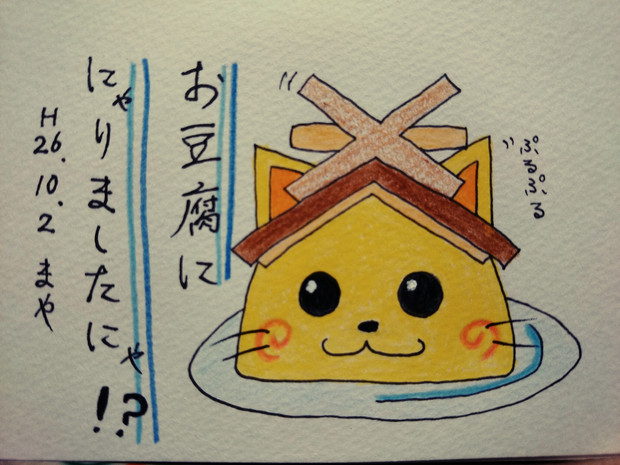 お豆腐に
にゃりましたにゃ!?
H26.10.2 まや
ぷるぷる